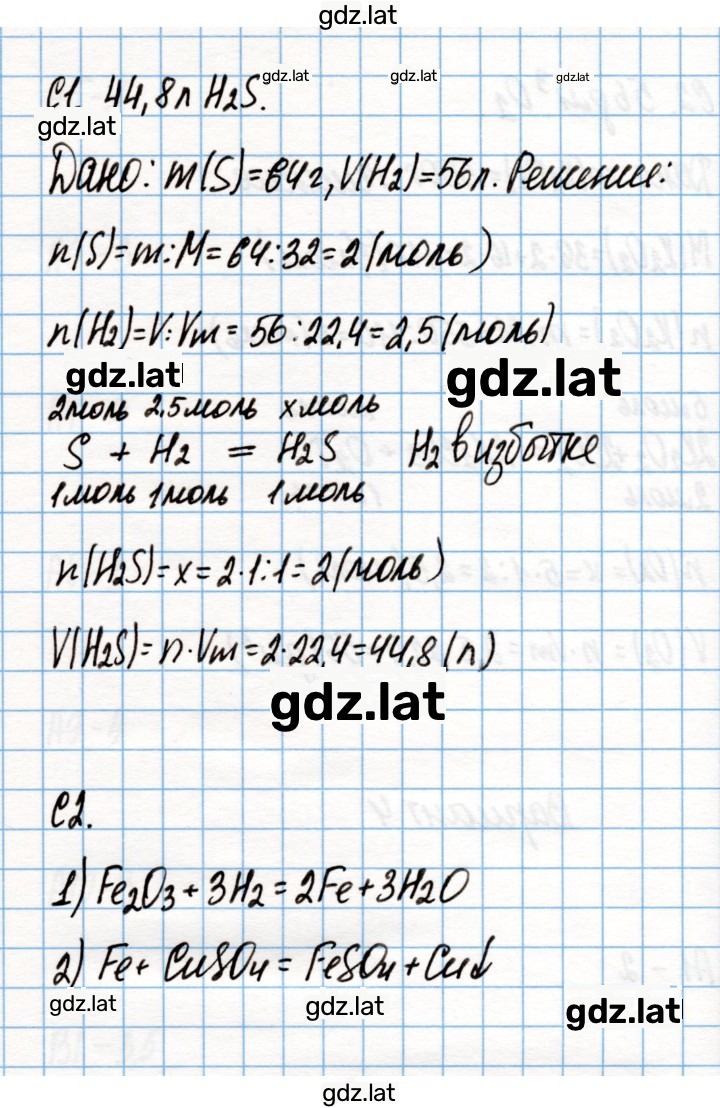 gdz.lat
С1. 44,8л H₂S.
gdz.lat gdz.lat gdz.lat
gdz.lat
Дано: m(S)=64г, V(H₂)=56л. Решение:
n(S)=m:M=64:32=2(моль)
n(H₂)=V:Vm=56:22,4=2,5(моль)
gdz.lat gdz.lat
2моль 2,5моль xмоль
S + H₂ = H₂S H₂ в избытке
1моль 1моль 1моль
n(H₂S)=x=2·1:1=2(моль)
V(H₂S)=n·Vm=2·22,4=44,8(л)
gdz.lat
С2.
1) Fe₂O₃+3H₂=2Fe+3H₂O
2) Fe+CuSO₄=FeSO₄+Cu↓
gdz.lat gdz.lat gdz.lat
gdz.lat